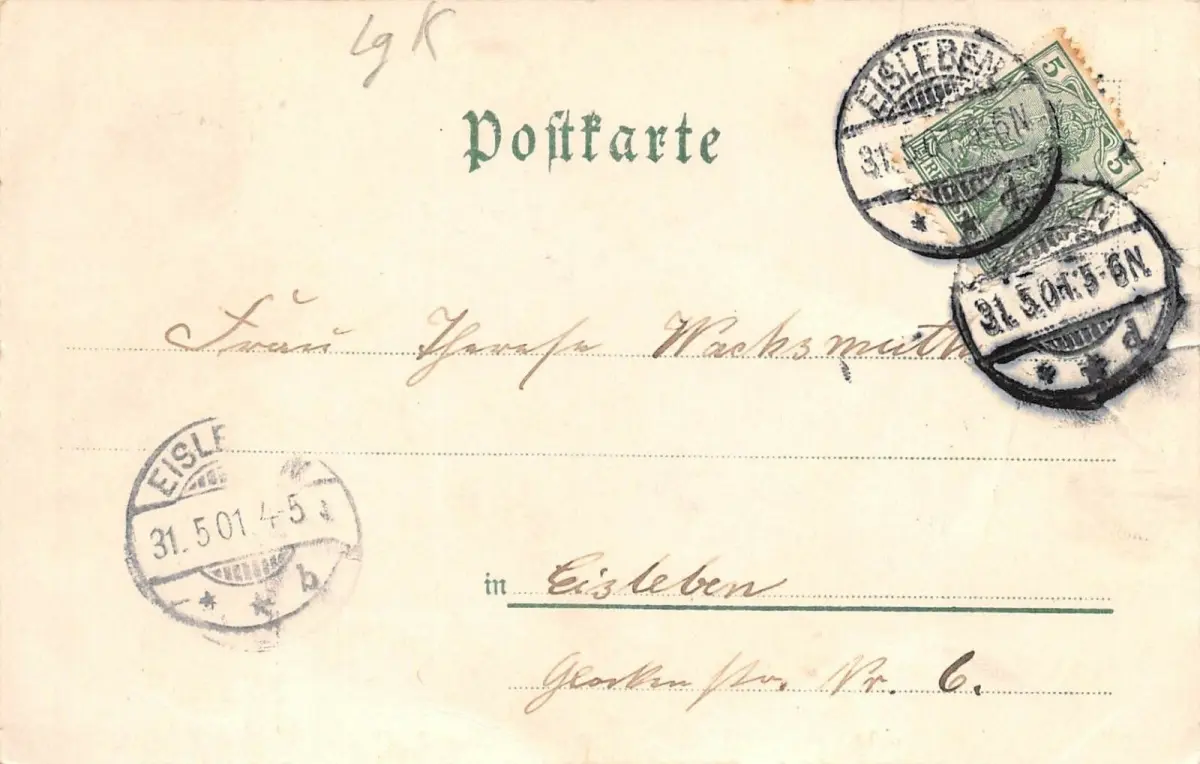 lg K
Postkarte
EISLEBEN
5
5
31.5
5-6N
d
31.5.01.5-6N.
* * d
Frau Therese Wachsmuth
EISLE
31.5.01.4-5
* * b
in Eisleben
Glockenstr. Nr. 6.